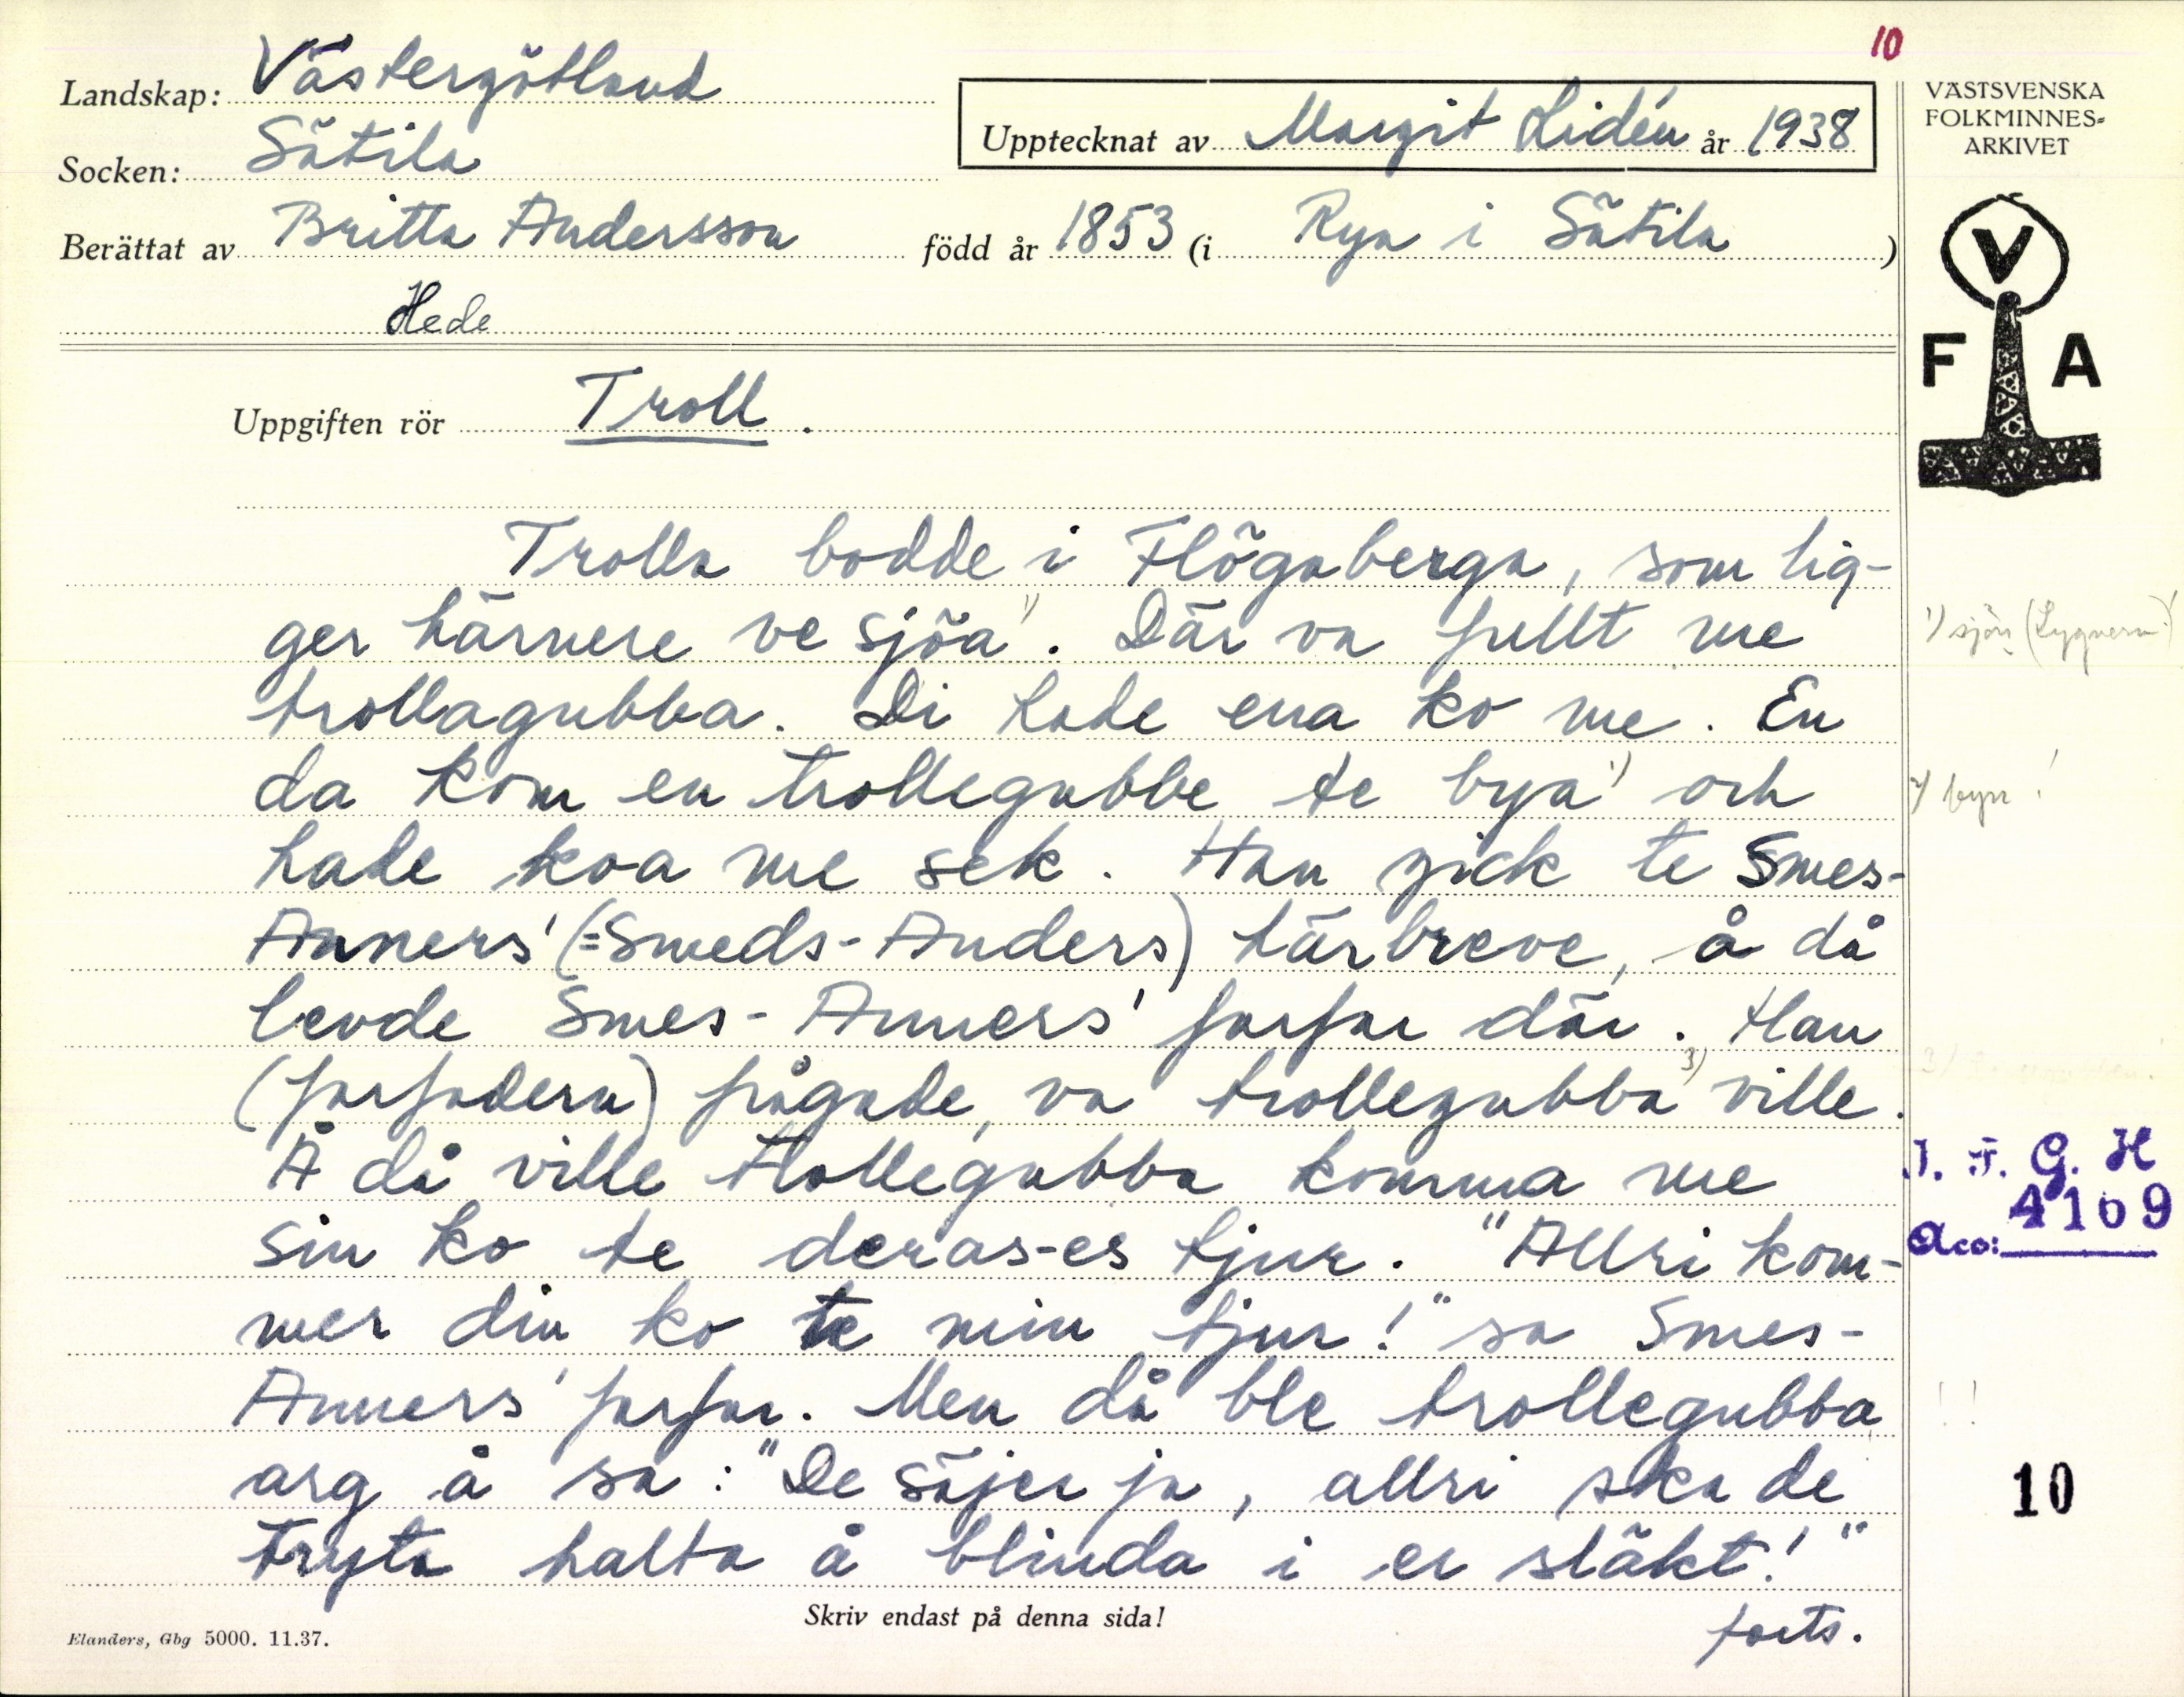 10
Landskap: Västergötland
Socken: Sätila
Upptecknat av Margit Lidén år 1938
Berättat av Britta Andersson född år 1853 (i Rya i Sätila)
Hede
VÄSTSVENSKA
FOLKMINNES=
ARKIVET
V
F A
Uppgiften rör Troll.
Trolla bodde i Flögaberga, som lig-
ger härnere ve sjöa¹⁾. Där va fullt me
1) sjön (Lygnern)
trollagubba. Di hade ena ko me. En
da kom en trollegubbe te bya¹⁾ och
2) byn!
hade koa me sek. Han gick te Smes-
Anners' (=Smeds-Anders) härbreve, å då
levde Smes-Anners' farfar där. Han
(farfadern) frågade, va trollegubba³⁾ ville.
3)
Å då ville trollegubba komma me
sin ko te deras-es tjur. "Allri kom-
I. F. G. H
4109
Acc:
mer din ko te min tjur!" sa Smes-
Anners' farfar. Men då ble trollegubba
! !
arg å sa: "De säjer ja, allri ska de
10
tryta halta å blinda i er släkt!"
Skriv endast på denna sida!
forts.
Elanders, Gbg 5000. 11.37.